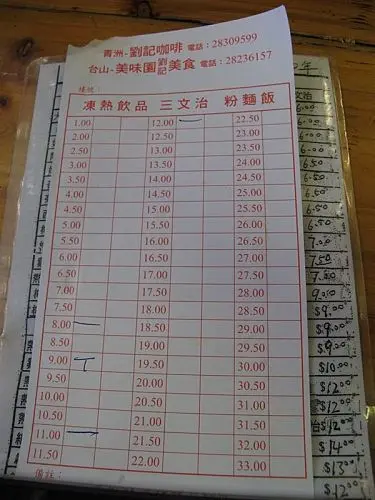 青洲-劉記咖啡 電話：28309599
台山-美味園劉記美食 電話：28236157
檯號：
凍熱飲品 三文治 粉麵飯
1.00 12.00 22.50
2.00 12.50 23.00
2.50 13.00 23.50
3.00 13.50 24.00
3.50 14.00 24.50
4.00 14.50 25.00
4.50 15.00 25.50
5.00 15.50 26.00
5.50 16.00 26.50
6.00 16.50 27.00
6.50 17.00 27.50
7.00 17.50 28.00
7.50 18.00 28.50
8.00 18.50 29.00
8.50 19.00 29.50
9.00 19.50 30.00
9.50 20.00 30.50
10.00 20.50 31.00
10.50 21.00 31.50
11.00 21.50 32.00
11.50 22.00 33.00
備註：
年
文治
6.00
6.00
6.50
6.50
6.50
7.00
7.50
$9.00
$9.00
$10.00
$12.00
$12.00
$12.00
$14.00
$13.00